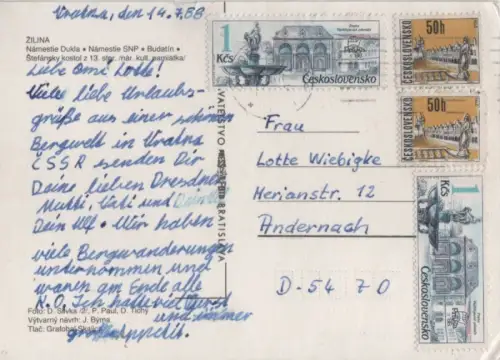 Vratna, den 14.7.88
ŽILINA
Námestie Dukla • Námestie SNP • Budatín •
Štefánsky kostol z 13. stor. /nár. kult. pamiatka/
Liebe Omi Lotte!
Viele liebe Urlaubs-
grüße aus einer schönen
Bergwelt in Vratna
ČSSR senden Dir
Deine lieben Dresdner
Mutti, Vati und
Dein Ulf. Wir haben
viele Bergwanderungen
unternommen und
waren am Ende alle
K.O. Ich hatte viel Durst
und immer
großen Appetit.
Foto: D. Slivka /2/, P. Paul, D. Tichý
Výtvarný návrh: J. Býrna
Tlač: Grafobal Skalica
BRATISLAVA
Frau
Lotte Wiebigke
Merianstr. 12
Andernach
D-5470
1
Kčs
Československo
50h
ČESKOSLOVENSKO
50h
ČESKOSLOVENSKO
1
Kčs
Československo